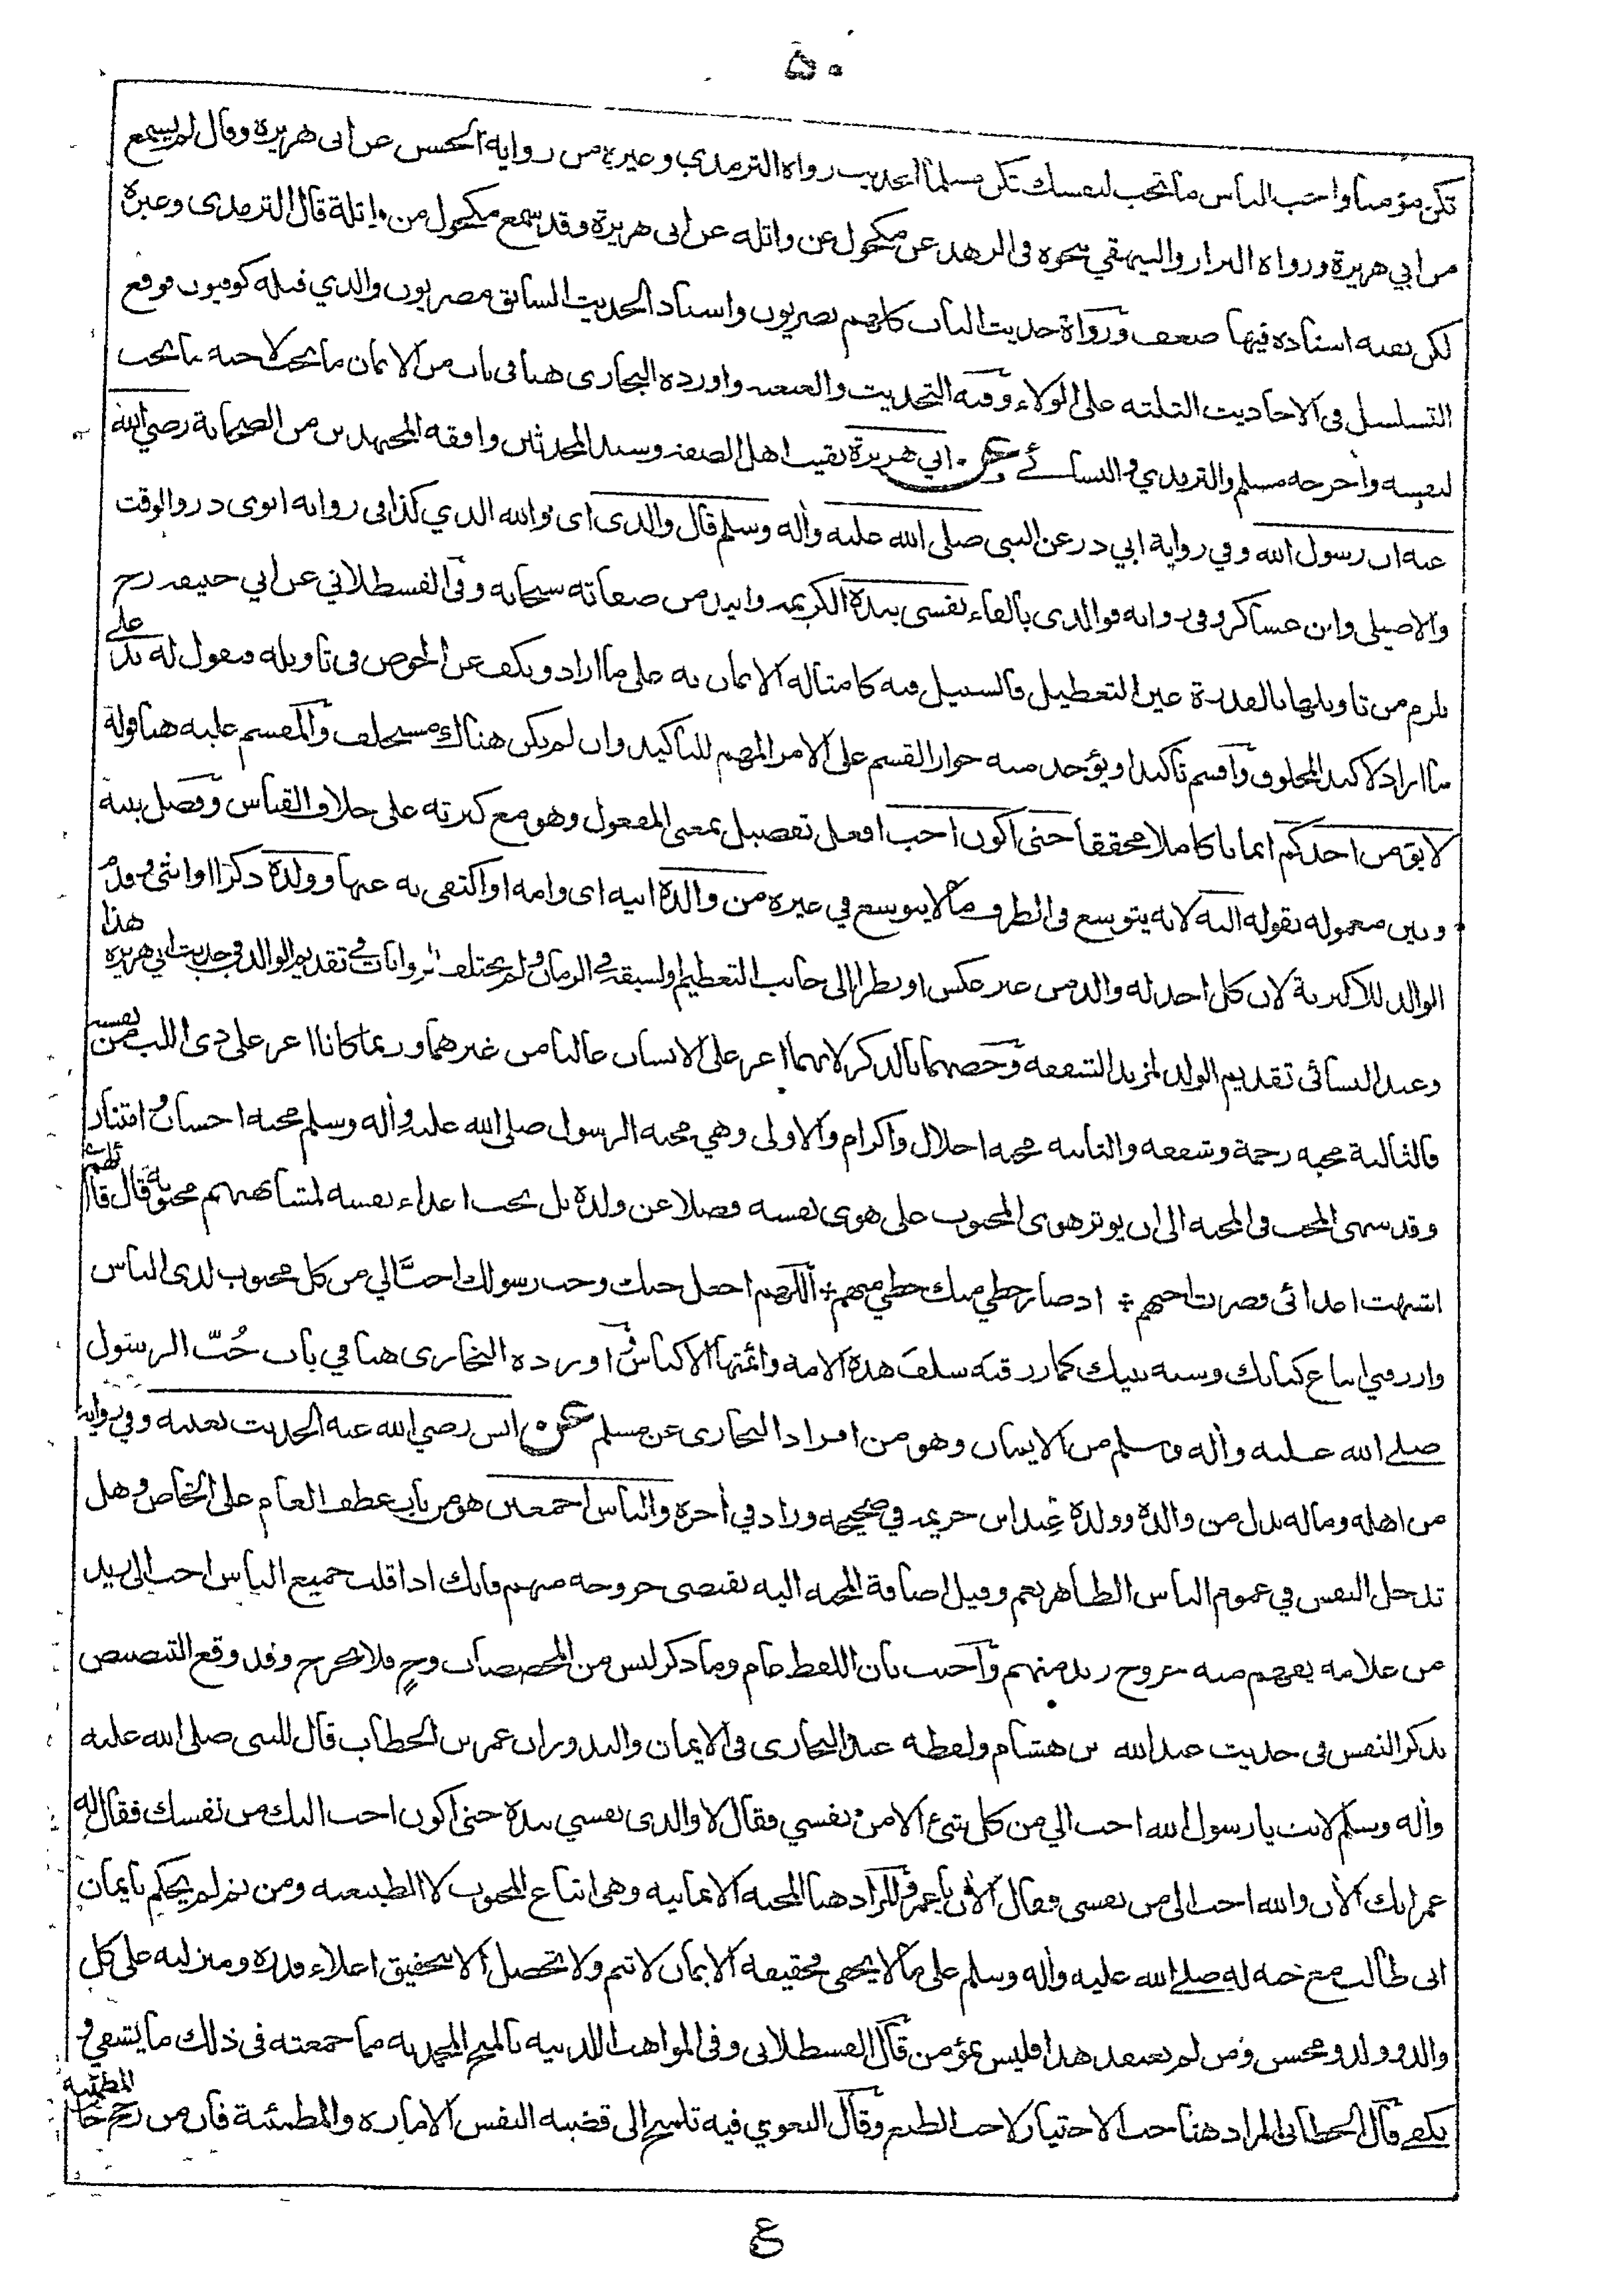 ٥٠
تكن مؤمنا واحب الناس ما تحب لنفسك تكن مسلما الحديث رواه الترمذي وغيره من رواية الحسن عن ابي هريرة وقال لم يسمع
من ابي هريرة ورواه البزار والبيهقي بنحوه في الزهد عن مكحول عن واثلة عن ابي هريرة وقد سمع مكحول من واثلة قال الترمذي وغيره
لكن بقية اسناده فيها ضعف ورواة حديث الباب كلهم بصريون واسناد الحديث السابق مصريون والذي قبله كوفيون فوقع
التسلسل في الاحاديث الثلثة على الولاء وفيه التحديث والعنعنة واورده البخاري هنا في باب من الايمان ما يحب لاخيه ما يحب
لنفسه واخرجه مسلم والترمذي والنسائي وعن ابي هريرة نقيب اهل الصفة وسيد المحدثين وافقه المجتهدين من الصحابة رضي الله
عنه ان رسول الله وفي رواية ابي ذر عن النبي صلى الله عليه وأله وسلم قال والذي اى والله الذي كذا في رواية ابوى ذر والوقت
والاصيلي وابن عساكر وفي رواية فوالذي بالفاء نفسي بيده الكريمة واليد من صفاته سبحانه وفي القسطلاني عن ابي حنيفة رح
يلزم من تاويلها بالقدرة عين التعطيل فالسبيل فيه كامثاله الايمان به على ما اراد ونكف عن الخوض في تاويله فنقول له يد على
ما اراد لا كيد المخلوق واقسم تاكيدا ويؤخذ منه جواز القسم على الامر المهم للتاكيد وان لم يكن هناك مستحلف والمقسم عليه هنا قوله
لا يؤمن احدكم ايمانا كاملا محققا حتى اكون احب افعل تفضيل بمعنى المفعول وهو مع كثرته على خلاف القياس وفصل بينه
وبين معموله بقوله اليه لانه يتوسع في الظرف ما لا يتوسع في غيره من والده ابيه اى وامه او اكتفى به عنها وولده ذكرا او انثى وقدم
الوالد للاكثرية لان كل احد له والد من غير عكس او نظرا الى جانب التعظيم او لسبقه في الزمان ولم يختلف الروايات في تقديم الوالد في حديث ابي هريرة هذا
وعند النسائي تقديم الولد لمزيد الشفقة وخصهما بالذكر لانهما اعز على الانسان غالبا من غيرهما وربما كانا اعز على ذي اللب من نفسه
فالثالثة محبة رحمة وشفقة والثانية محبة اجلال واكرام والاولى وهي محبة الرسول صلى الله عليه وأله وسلم محبة احسان و
وقد ينتهى المحب في المحبة الى ان يوثر هوى المحبوب على هوى نفسه فضلا عن ولده بل يحب اعداء نفسه لمشابهتهم محبوبه قال قائلهم
اشبهت اعدائي فصرت احبهم ÷ اذ صار حظي منك حظي منهم ÷ اللهم اجعل حبك وحب رسولك احب الي من كل محبوب لدى الناس
وارزقني اتباع كتابك وسنة نبيك كما رزقته سلف هذه الامة وائمتها الاكياس اورده البخاري هنا في باب حُبّ الرسول
صلى الله عليه وأله وسلم من الايمان وهو من افراد البخاري عن مسلم وعن انس رضي الله عنه الحديث بعينه وفي رواية
من اهله وماله بدل من والده وولده عند ابن خزيمة في صحيحه وزاد في أخره والناس اجمعين هو من باب عطف العام على الخاص وهل
تدخل النفس في عموم الناس الظاهر نعم وقيل اضافة المحبة اليه تقتضى خروجه منهم فانك اذا قلت جميع الناس احب الى زيد
من غلامه يفهم منه خروج زيد منهم واجيب بان اللفظ عام وما ذكر ليس من المخصصات وحٍ فلا يخرج وقد وقع التنصيص
بذكر النفس في حديث عبد الله بن هشام ولفظه عند البخاري في الايمان والنذور ان عمر بن الخطاب قال للنبي صلى الله عليه
وأله وسلم لانت يا رسول الله احب الي من كل شيء الا من نفسي فقال لا والذي نفسي بيده حتى اكون احب اليك من نفسك فقال له
عمر انك الأن والله احب الى من نفسي فقال الأن يا عمر والمراد هنا المحبة الايمانية وهي اتباع المحبوب لا الطبيعية ومن ثم لم يحكم بايمان
ابي طالب مع حبه له صلى الله عليه وأله وسلم على ما لا يخفى فحقيقة الايمان لا تتم ولا تحصل الا بتحقيق اعلاء قدره ومنزلته على كل
والد وولد ومحسن ومن لم يعتقد هذا فليس بمؤمن قال القسطلاني وفي المواهب اللدنية بالمنح المحمدية مما جمعته في ذلك ما يشفي و
يكفي قال الخطابي المراد هنا حب الاختيار لا حب الطبع وقال النووي فيه تلميح الى قضية النفس الامارة والمطمئنة فان من رجح جانب المطمئنة
ع